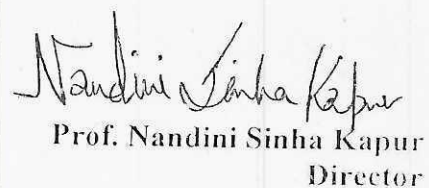 Nandini Sinha Kapur
Prof. Nandini Sinha Kapur
Director